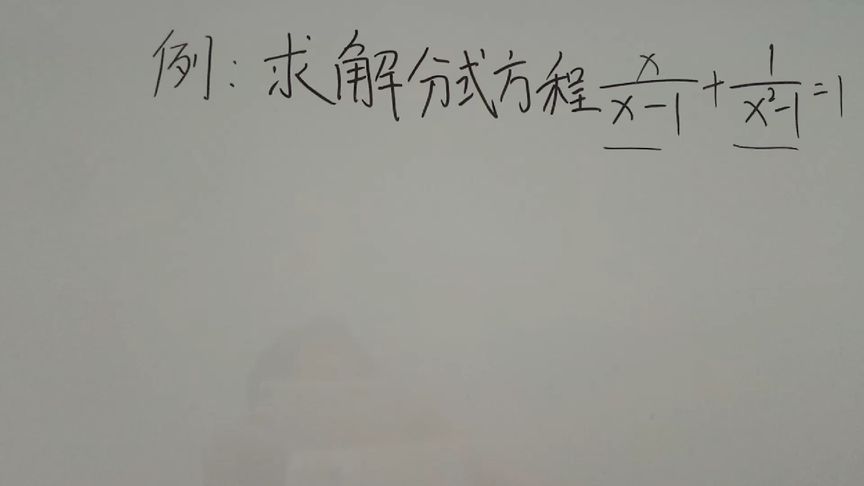 例：求解分式方程 x/(x-1) + 1/(x²-1) = 1